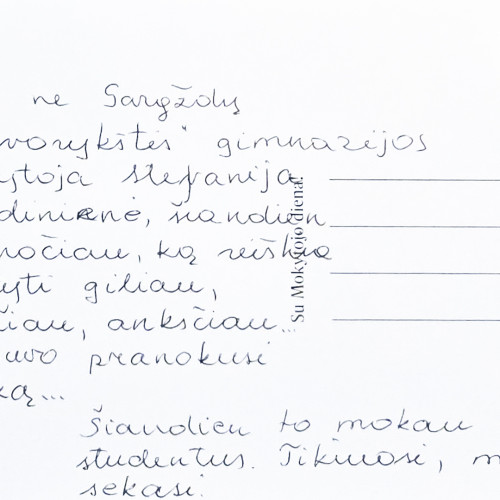 ne Gargždų
vorykštės" gimnazijos
ytoja Stefanija
dinienė, šiandien
nočiau, ką reiškia
yti giliau,
čiau, anksčiau...
uvo pranokusi
ką...
Šiandien to mokau
studentus. Tikiuosi, m
sekasi.
Su Mokytojo diena!